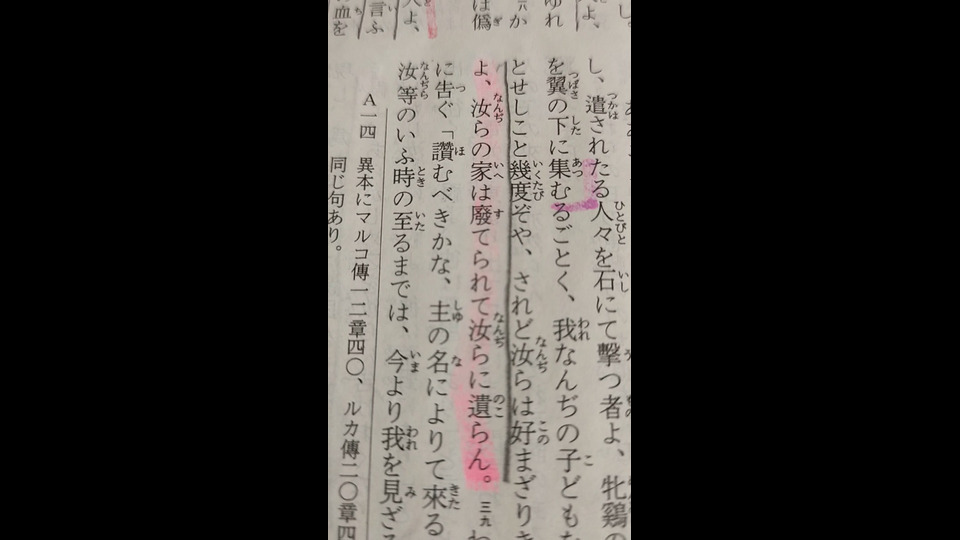 し。
よ、
ゆれ
か
は僞
人よ、
言ふ
血を
し、遣されたる人々を石にて擊つ者よ、牝鷄の
を翼の下に集むるごとく、我なんぢの子どもを
とせしこと幾度ぞや、されど汝らは好まざりき
よ、汝らの家は廢てられて汝らに遺らん。三九わ
に告ぐ「讚むべきかな、主の名によりて來る
汝等のいふ時の至るまでは、今より我を見ざる
A一四 異本にマルコ傳一二章四〇、ルカ傳二〇章四
同じ句あり。